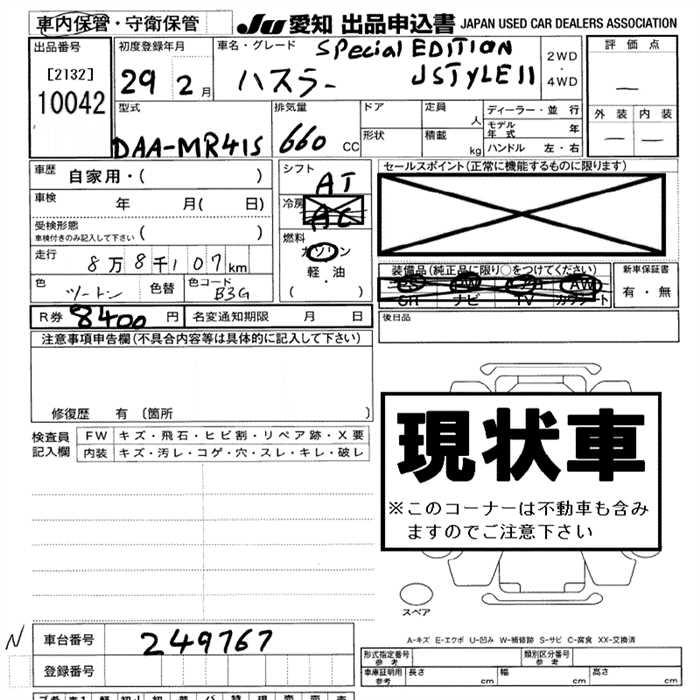 車内保管・守衛保管
JU 愛知 出品申込書 JAPAN USED CAR DEALERS ASSOCIATION
出品番号 初度登録年月 車名・グレード 評価点
[2132]
10042
29 2月 ハスラー SPecial EDITION JSTYLEII
2WD・4WD
外装 内装
型式 排気量 ドア 定員 人 ディーラー・並行
DAA-MR41S 660cc
形状 積載 kg モデル年式 年
ハンドル 左・右
車歴 自家用・( )
車検 年 月( 日)
受検形態
車検付きのみ記入して下さい ( )
走行 8万8千107km
色 ツートン 色替 色コード B3G
シフト AT
冷房 AC
燃料 ガソリン・軽油
( )
セールスポイント(正常に機能するものに限ります)
装備品(純正品に限り○をつけてください) 新車保証書
PS PW AW
SR ナビ TV カワシート 有・無
R券 8400円 名変通知期限 月 日
後日品
注意事項申告欄(不具合内容等は具体的に記入して下さい)
修復歴 有〔箇所 〕
検査員記入欄
FW キズ・飛石・ヒビ割・リペア跡・X要
内装 キズ・汚レ・コゲ・穴・スレ・キレ・破レ
現状車
※このコーナーは不動車も含み
ますのでご注意下さい
スペア
A-キズ E-エクボ U-凹み W-補修跡 S-サビ C-腐食 XX-交換済
N 車台番号 249767
登録番号
形式指定番号 参考 類別区分番号 参考
車庫証明用 参考 長さ cm 幅 cm 高さ cm